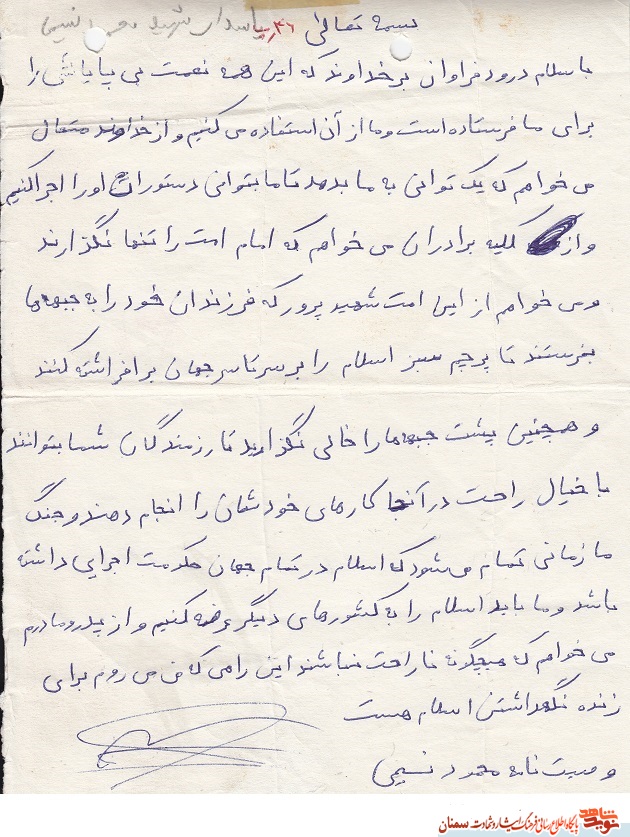 بسمه تعالی ۴۶ پاسدار شهید محمود نسیمی
با سلام درود فراوان بر خداوند که این همه نعمت بی پایانش را
برای ما فرستاده است و ما از آن استفاده می کنیم و از خداوند متعال
می خواهم که یک توانی به ما بدهد تا ما بتوانی دستورات او را اجرا کنیم
و از کلیه برادران می خواهم که امام امت را تنها نگزارند
و می خواهم از این امت شهید پرور که فرزندان خود را به جبهه ها
بفرستند تا پرچم سبز اسلام را بر سرتاسر جهان برافراشته کنند
و همچنین پشت جبهه ها را خالی نگزارید تا رزمندگان شما بتوانند
با خیال راحت در آنجا کارهای خودشان را انجام دهند و جنگ
ما زمانی تمام می شود که اسلام در تمام جهان حکومت اجرایی داشته
باشد و ما باید اسلام را به کشورهای دیگر عرضه کنیم و از پدر و مادرم
می خواهم که هیچگونه ناراحت نباشند این راهی که من می روم برای
زنده نگهداشتن اسلام هست
وصیت نامه محمود نسیمی
نوید شاهد
پایگاه اطلاع رسانی فرهنگ ایثار و شهادت سمنان